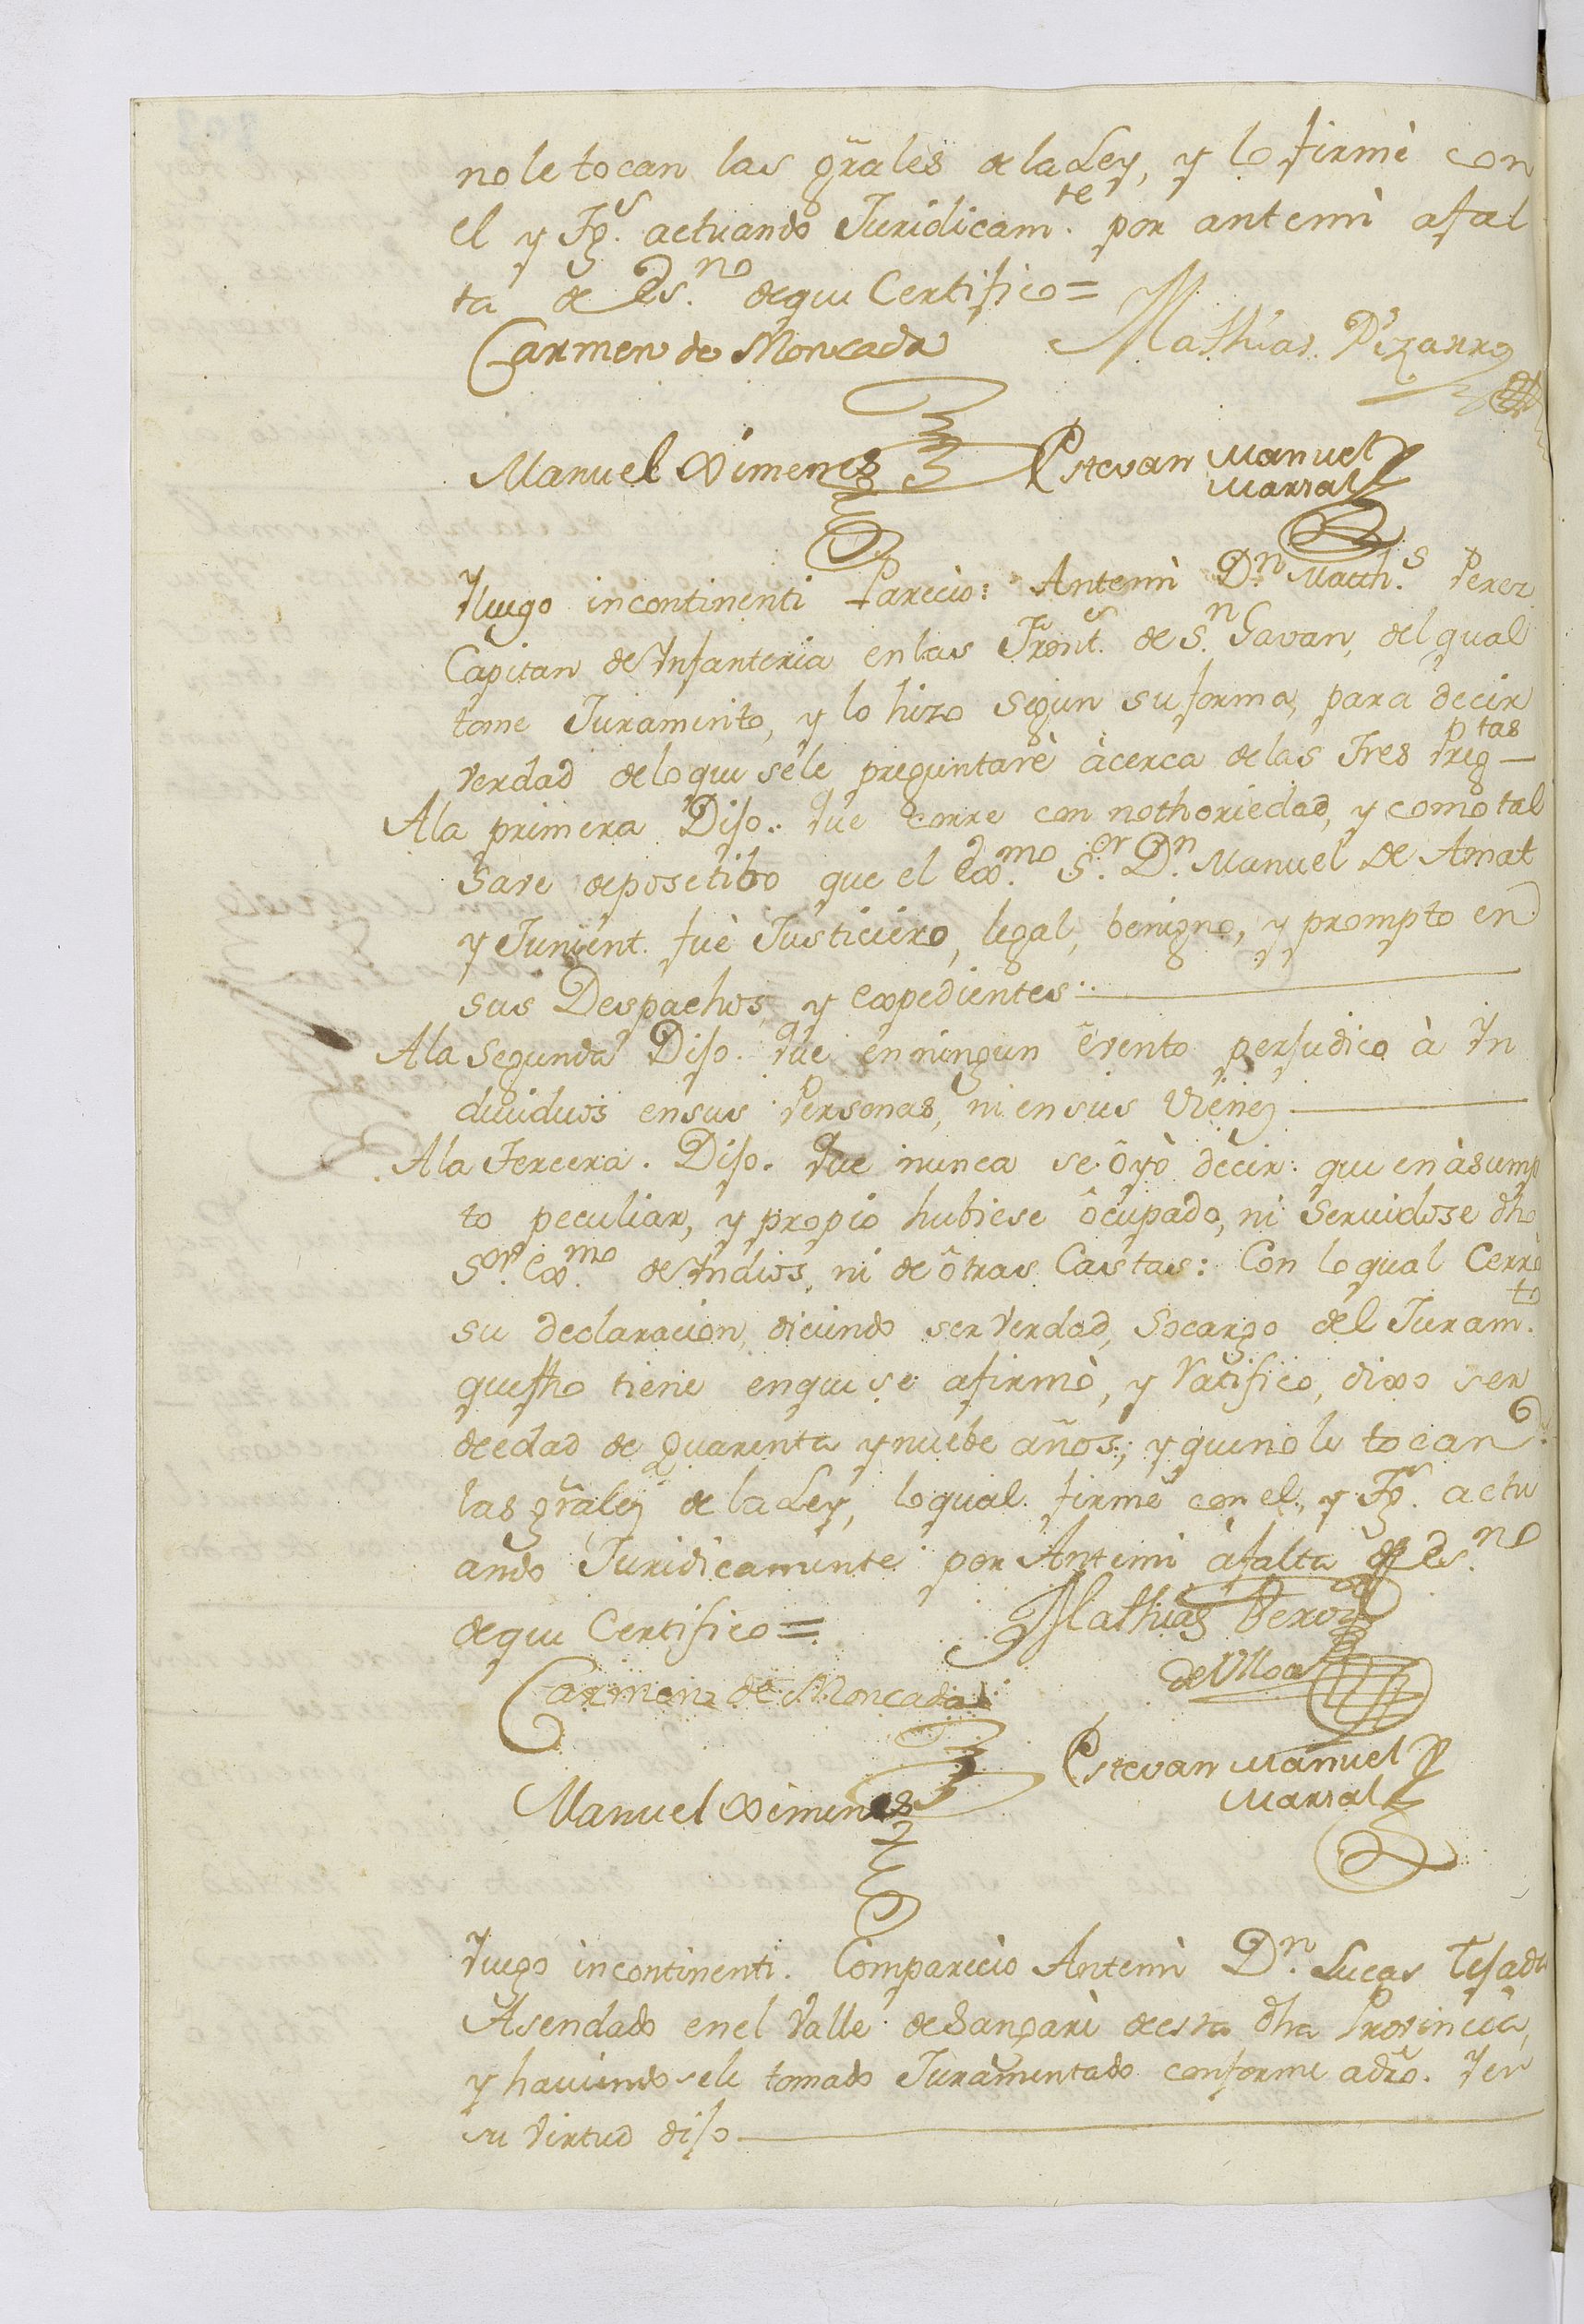 no le tocan las grãles de la Ley, y lo firmè con
el y Tgs. actuando Juridicamte. por antemi afal
ta de Es.no de que Certifico=
Carmen de Moncada Mathias Pizarro
Manuel Ximenes Estevan Manuel
Marzal
Yluego incontinenti Parecio: Antemi D.n Math.s Perez
Capitan de Ynfanteria en las Front.es de S.n Gavan, del qual
tome Juramento, y lo hizo segun su forma, para decir
verdad de lo que sele preguntarè àcerca de las Tres Pregtas
A la primera Dijo. Que corre con nothoriedad, y como tal
save depositibo que el Exmo. S.or D.n Manuel de Amat
y Junient. fuè Justiciero, legal, benigno, y prompto en
sus Despachos, y expedientes
A la Segunda Dijo. Que en ningun evento perjudico à Yn
dividuos en sus Personas, ni en sus Vienes
A la Tercera. Dijo. Que nunca se oyò decir: que en àsump
to peculiar, y propio hubiese ocupado, ni Servidose dho
S.or Ex.mo de Yndios, ni de otras Castas: Con lo qual Cerrò
su declaracion, diciendo ser verdad, Socargo del Juram.to
que fho tiene en que se afirmò, y Ratifico, dixo ser
de edad de quarenta y nuebe años; y que no le tocan
las grãles de la Ley, lo qual firmè con el, y Tgs. actu
ando Juridicamente por Antemi àfalta de Es.no
de que Certifico=. Mathias Perez
de Ulloa
Carmen de Moncada
Manuel Ximenes Estevan Manuel
Marzal
Yluego incontinenti. Comparecio Antemi D.n Lucas Tejada
Asendado en el Valle de Sangari de esta dha Provincia,
y haviendosele tomado Juramentado conforme a dro. Yen
su virtud dijo